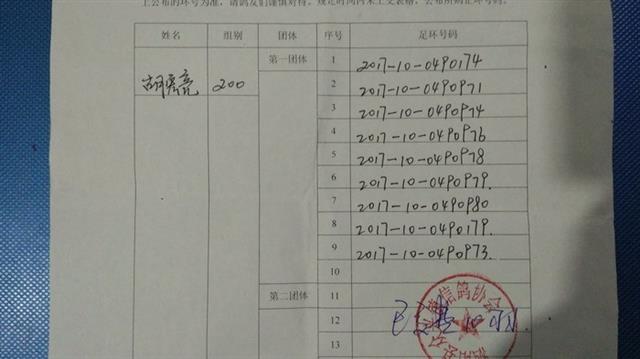 上公布的环号为准，请鸽友们谨慎对待。规定时间内未上交表格，公布所购正环号码。
姓名 组别 团体 序号 足环号码
胡亮 200 第一团体 1 2017-10-0490174
2 2017-10-0490971
3 2017-10-0490974
4 2017-10-0490976
5 2017-10-0490978
6 2017-10-0490979.
7 2017-10-0490980
8 2017-10-0490179.
9 2017-10-0490973.
10
第二团体 11
12
13
信鸽协会